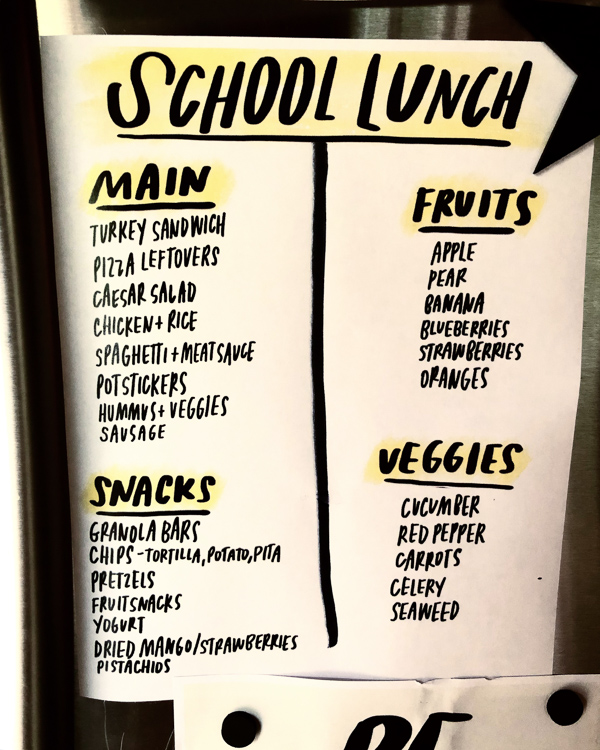 SCHOOL LUNCH
MAIN
TURKEY SANDWICH
PIZZA LEFTOVERS
CAESAR SALAD
CHICKEN + RICE
SPAGHETTI + MEATSAUCE
POTSTICKERS
HUMMUS + VEGGIES
SAUSAGE
SNACKS
GRANOLA BARS
CHIPS - TORTILLA, POTATO, PITA
PRETZELS
FRUITSNACKS
YOGURT
DRIED MANGO/STRAWBERRIES
PISTACHIOS
FRUITS
APPLE
PEAR
BANANA
BLUEBERRIES
STRAWBERRIES
ORANGES
VEGGIES
CUCUMBER
RED PEPPER
CARROTS
CELERY
SEAWEED